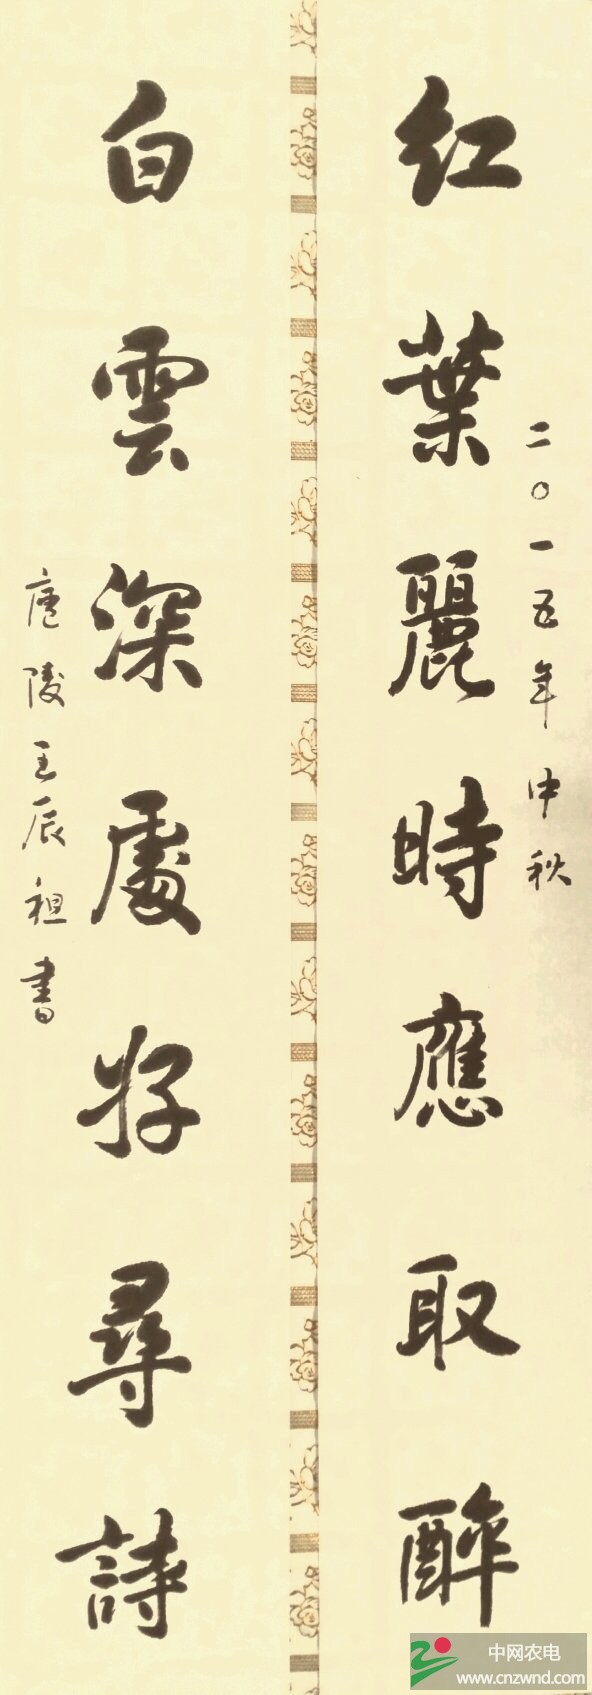 紅葉麗時應取醉
二〇一五年中秋
白雲深處好尋詩
陵王辰祖書
中网农电
www.cnzwnd.com